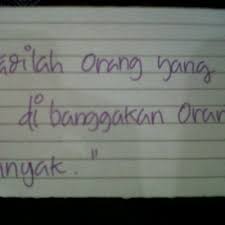 adilah orang yang
di banggakan Oran
anyak."